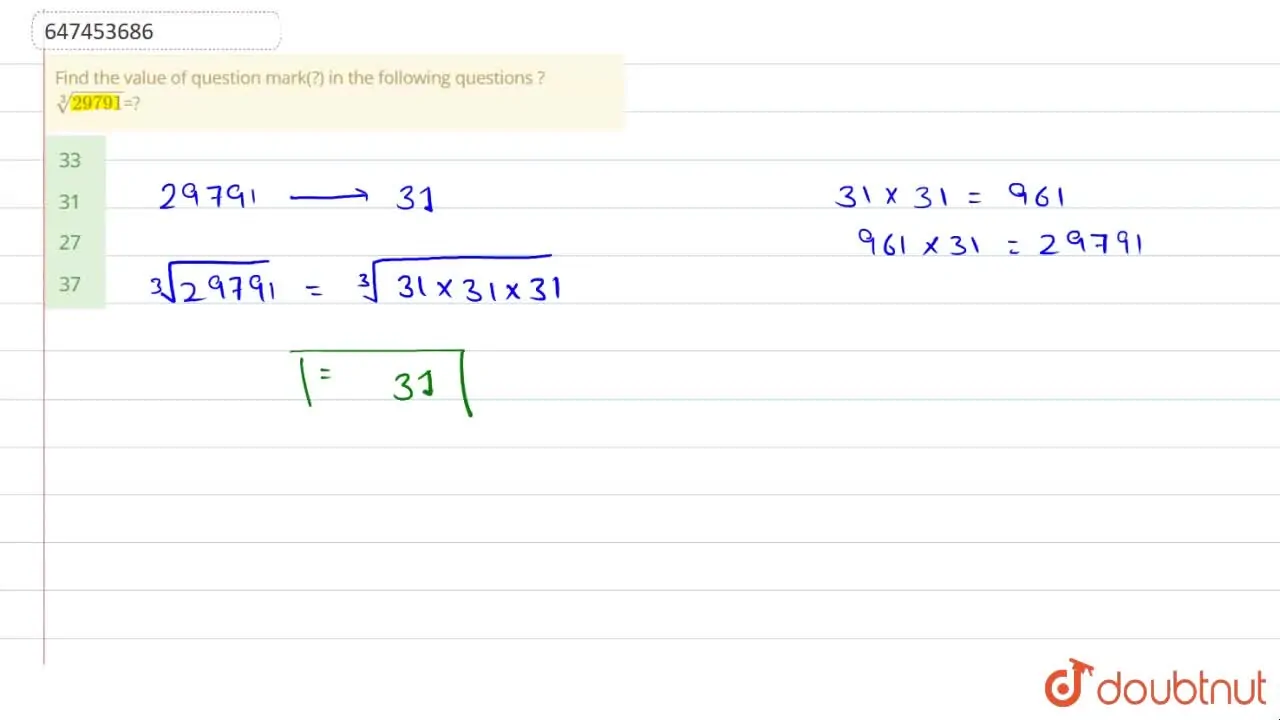 647453686
Find the value of question mark(?) in the following questions ?
∛29791=?
33
31
27
37
29791 ⟶ 31
∛29791 = ∛31 × 31 × 31
= 31
31 × 31 = 961
961 × 31 = 29791
doubtnut